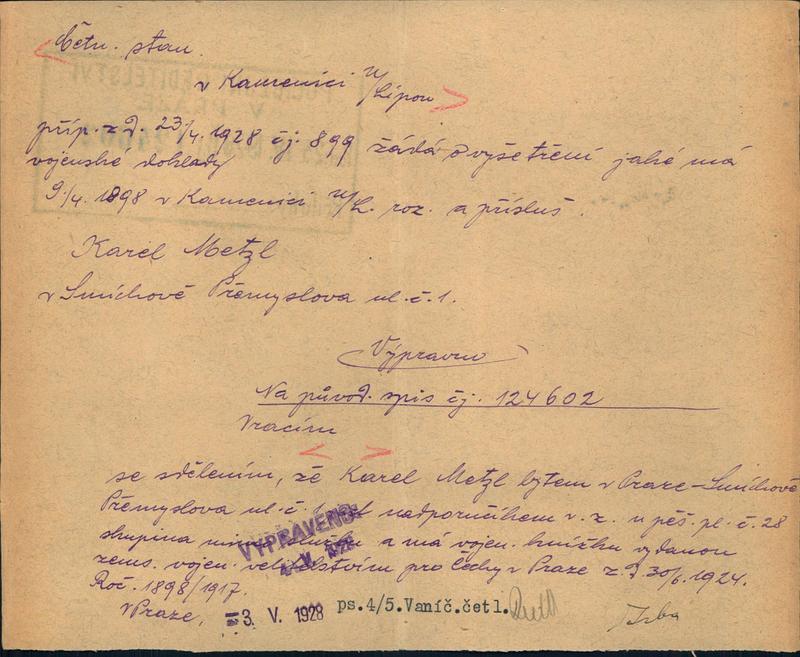 Četn. stan.
v Kamenici n/Lipou
příp. z d. 23/4. 1928 čj. 899 žádá o vyšetření jaké má
vojenské doklady
9./4. 1898 v Kamenici n/L. roz. a přísluš.
Karel Metzl
v Smíchově Přemyslova ul. č. 1.
Výpravno
Na původ. spis čj. 124602
Vracím
se sdělením, že Karel Metzl bytem v Praze-Smíchově
Přemyslova ul. č. 1. nadporučíkem v. z. u pěš. pl. č. 28
skupina a má vojen. knížku vydanou
zems. vojen. velitelstvím pro Čechy v Praze z d. 30/6. 1924.
Roč. 1898/1917.
VYPRAVENO:
4. V. 1928
V Praze, 3. V. 1928 ps.4/5.Vaníč.četl.